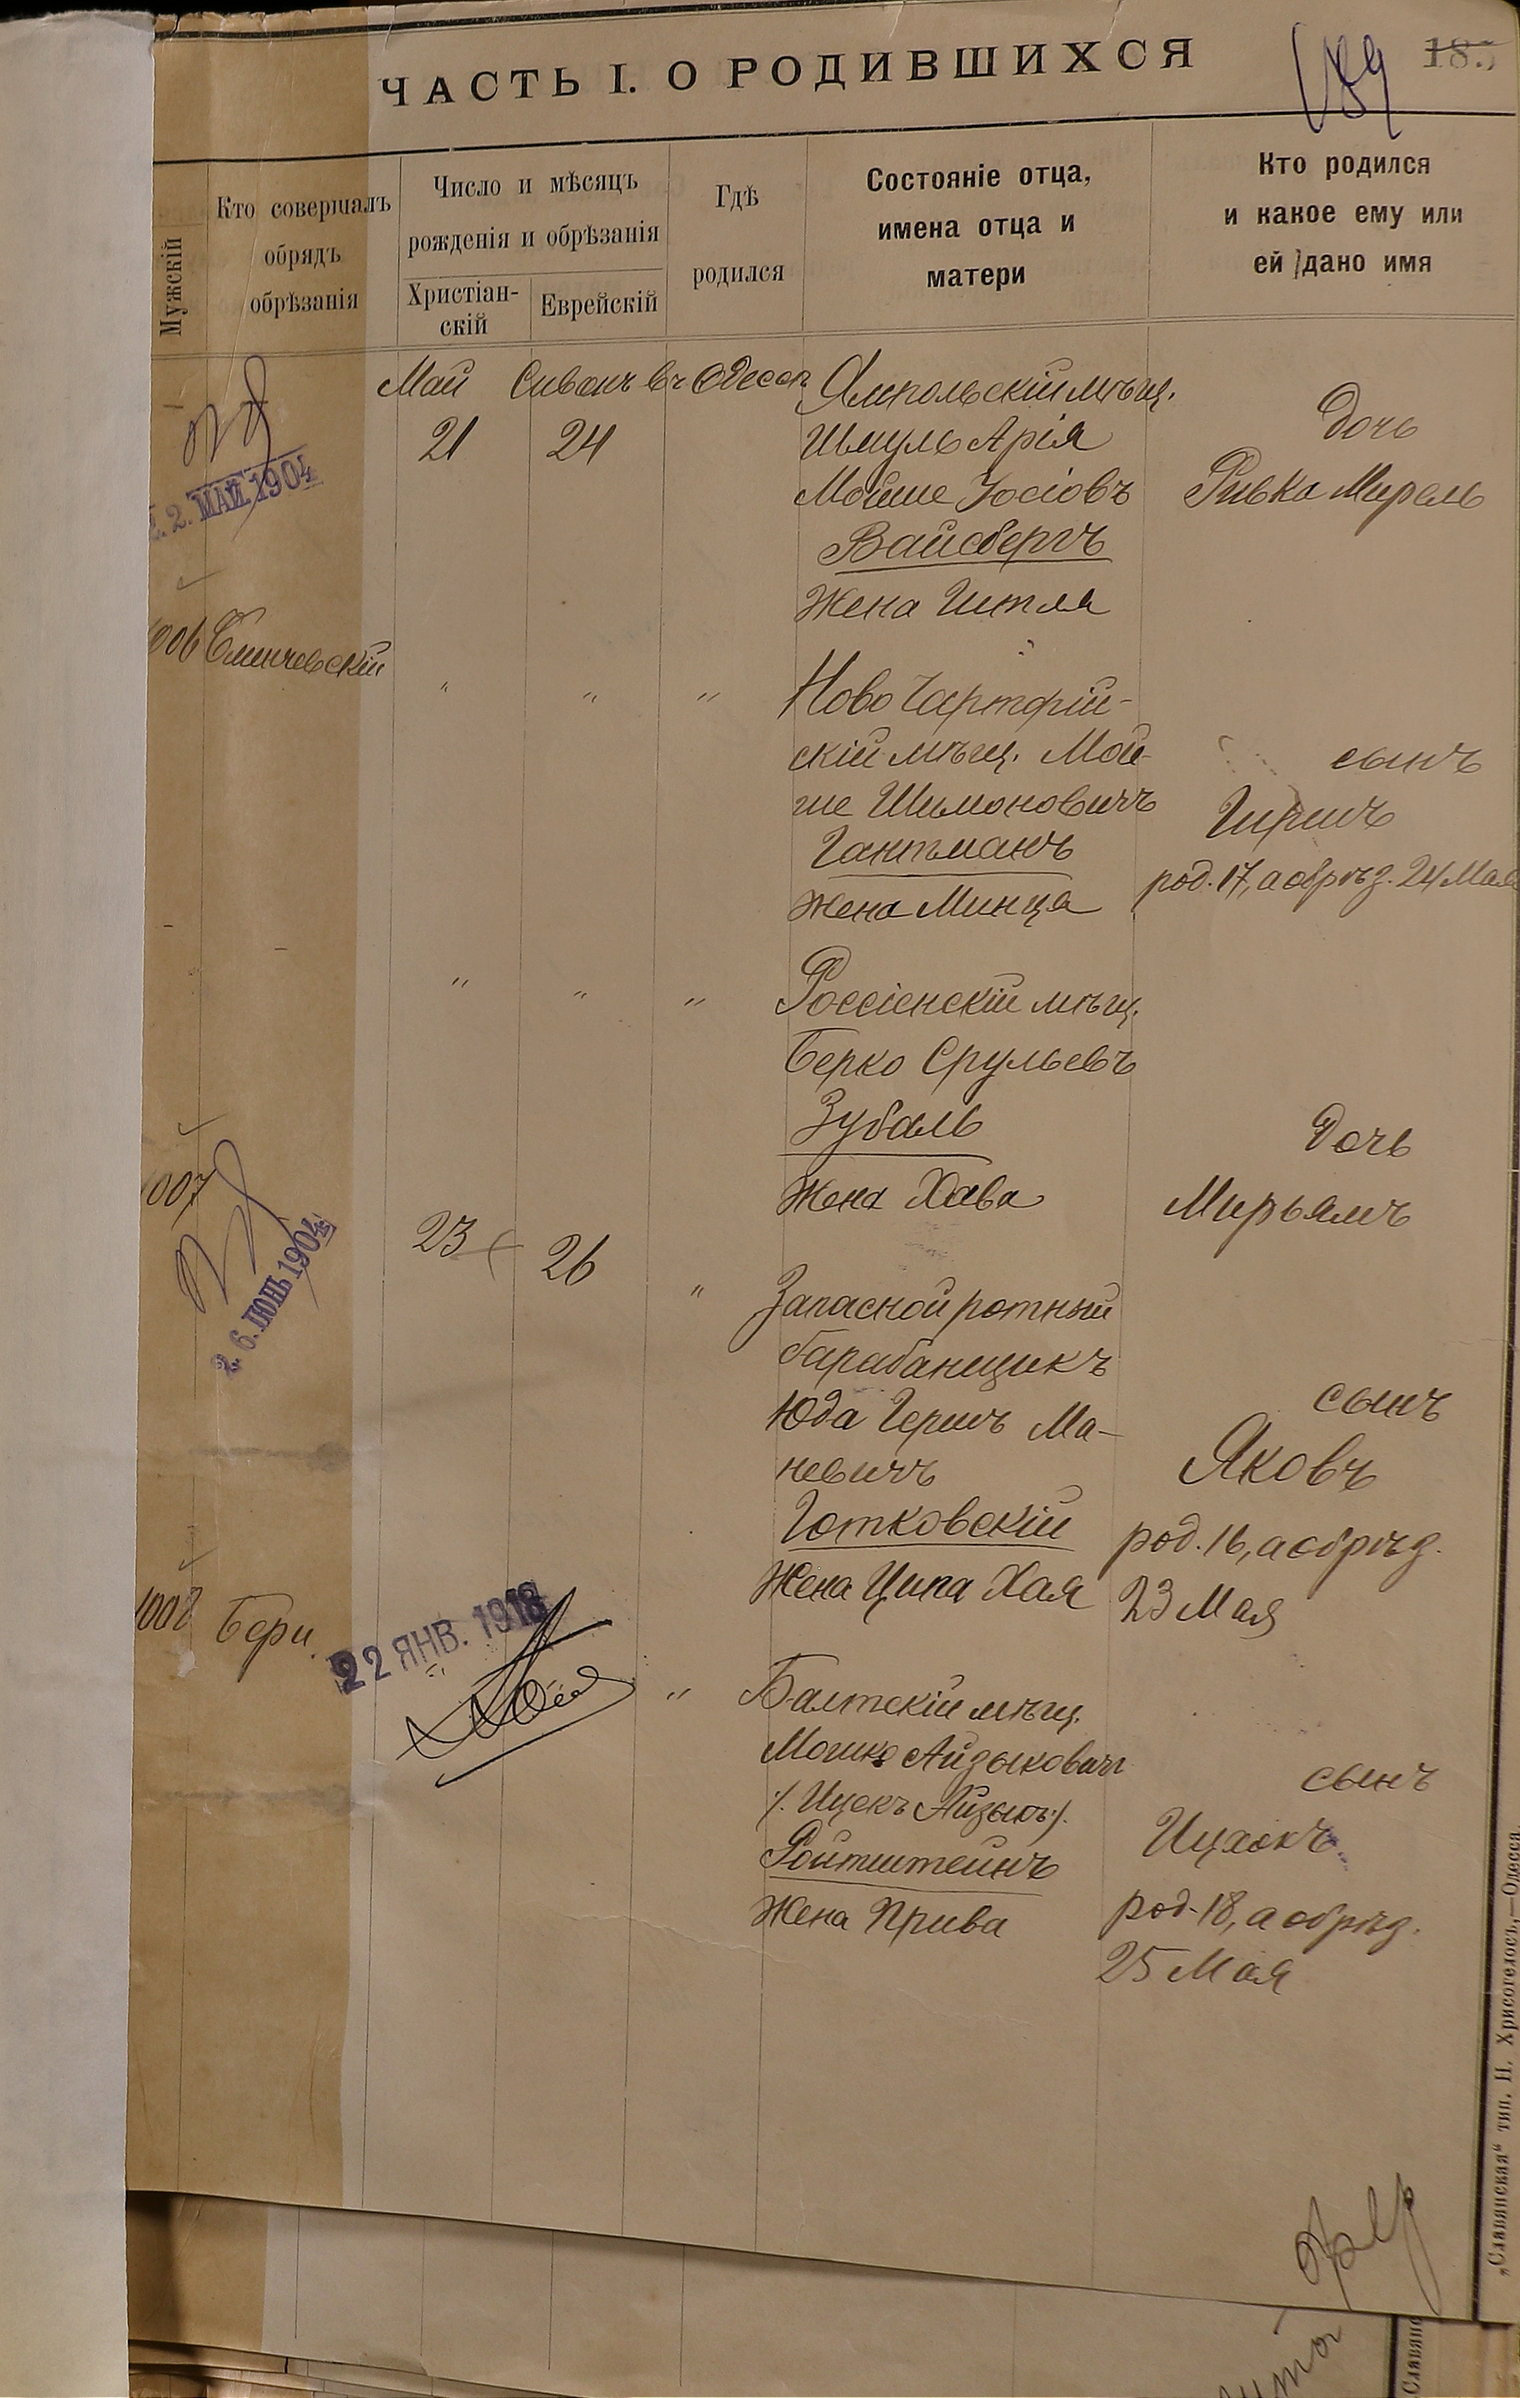 ЧАСТЬ I. О РОДИВШИХСЯ
189
Мужскій
Кто совершалъ
обрядъ
обрѣзанія
Число и мѣсяцъ
рожденія и обрѣзанія
Христіан-
скій
Еврейскій
Гдѣ
родился
Состояніе отца,
имена отца и
матери
Кто родился
и какое ему или
ей дано имя
Май Сиванъ въ Одессѣ
21 24
Ямпольскій мѣщ.
Шмуль Арія
Мойше Іосіовъ
Вайсбергъ
Жена Гитля
дочь
Ривка Мирель
2. МАЙ 1904
1006
" " "
Ново
скій мѣщ. Мой-
ше Шимоновичъ
Гантманъ
Жена Минця
сынъ
Гиршъ
род. 17, а обрѣз. 24 Мая
" " "
Россіенскій мѣщ.
Берко Срульевъ
Зубаль
Жена Хава
дочь
Мирьямъ
1007
2 6. ІЮНЬ 1904
23 26 "
Запасной ротный
барабанщикъ
Юда Гершъ Ма-
невичъ
Готковскій
Жена Ципа Хая
сынъ
Яковъ
род. 16, а обрѣз.
23 Мая
1008 Бери
22 ЯНВ. 1918
"
Балтскій мѣщ.
Мошко Айзыковичъ
/. Ицекъ Айзыкъ ./.
Ройтштейнъ
Жена Прива
сынъ
Ицхокъ
род. 18, а обрѣз.
25 Мая
„Славянская“ тип. Н. Хрисогелосъ,—Одесса.
Славянс